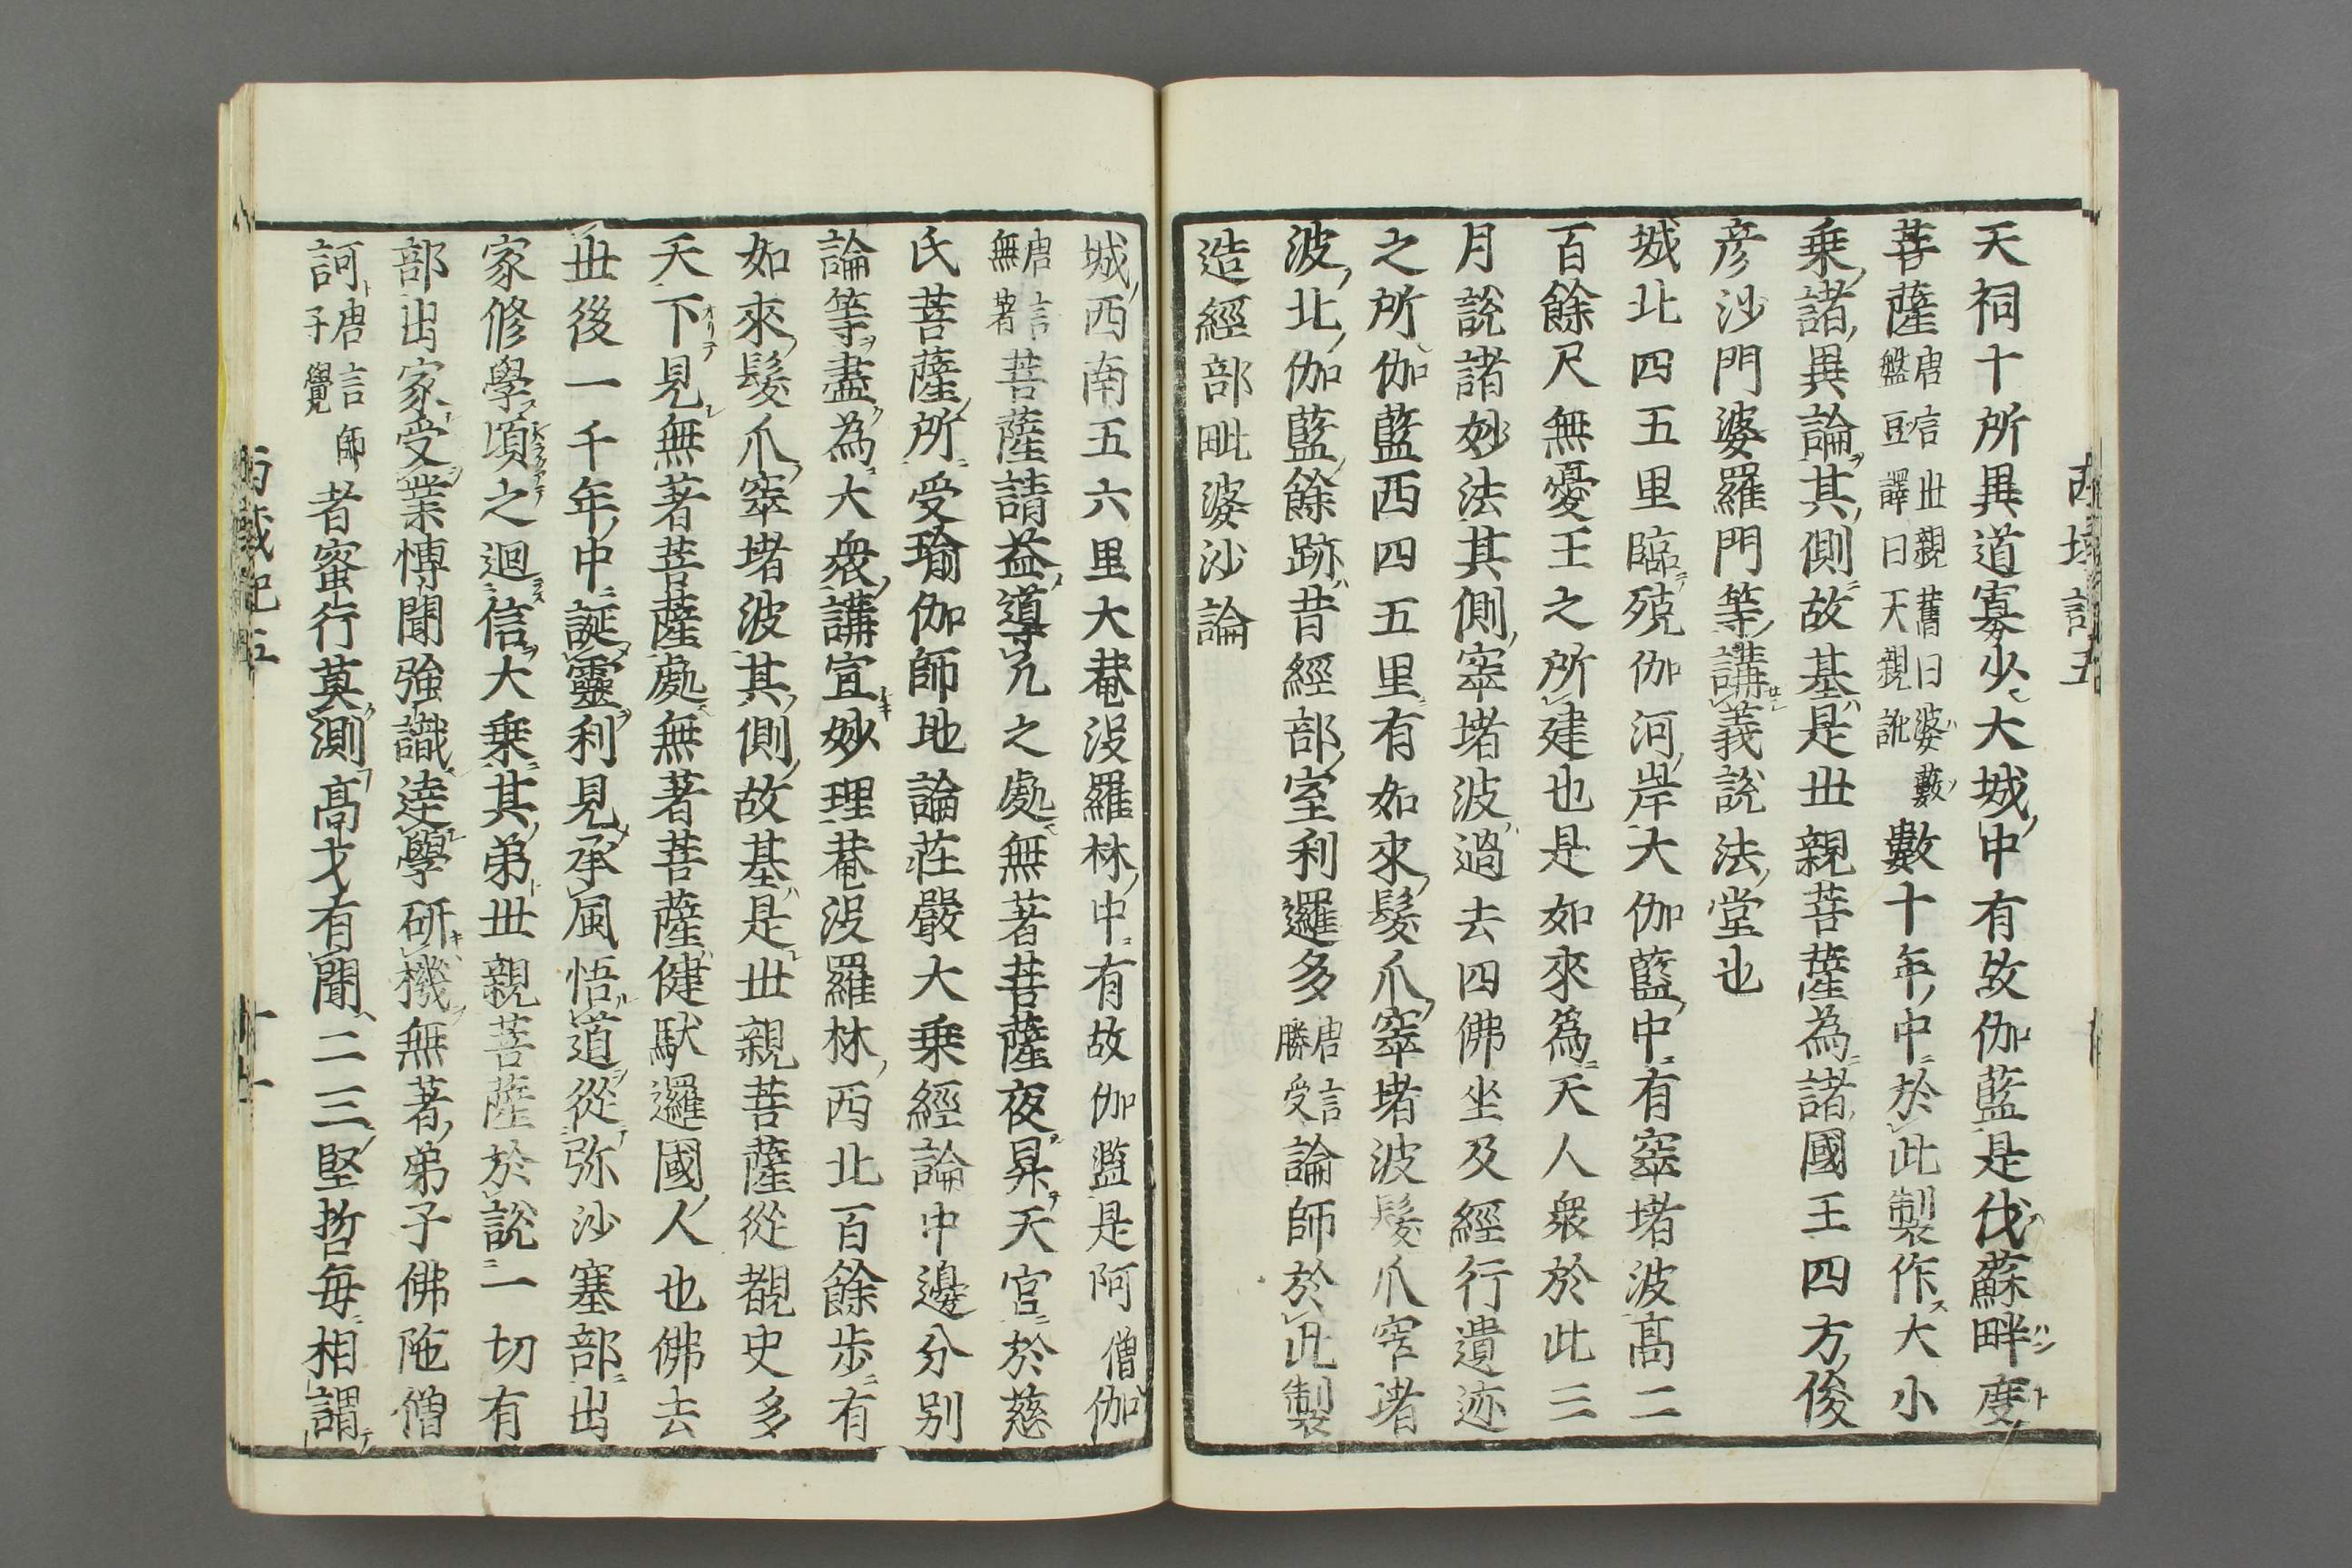 天祠十所異道寡少大城中有故伽藍是伐蘇畔度
菩薩唐言世親舊曰婆藪盤豆譯曰天親訛數十年中於此製作大小
乗諸異論其側故基是世親菩薩為諸國王四方俊
彦沙門婆羅門等講義說法堂也
城北四五里臨殑伽河岸大伽藍中有窣堵波高二
百餘尺無憂王之所建也是如來爲天人衆於此三
月說諸妙法其側窣堵波過去四佛坐及經行遺迹
之所伽藍西四五里有如來髮爪窣堵波髮爪窣堵
波北伽藍餘跡昔經部室利邏多唐言勝受論師於此製
造經部毗婆沙論
城西南五六里大菴没羅林中有故伽藍是阿僧伽
唐言無著菩薩請益導凢之處無著菩薩夜昇天宫於慈
氏菩薩所受瑜伽師地論莊嚴大乗經論中邊分別
論等盡為大衆講宣妙理菴没羅林西北百餘歩有
如來髮爪窣堵波其側故基是世親菩薩從覩史多
天下見無著菩薩處無著菩薩健馱邏國人也佛去
世後一千年中誕靈利見承風悟道從弥沙塞部出
家修學頃之迴信大乗其弟世親菩薩於說一切有
部出家受業博聞強識逹學研機無著弟子佛陁僧
訶唐言師子覺者蜜行莫測高才有聞二三堅哲每相謂
西域記五